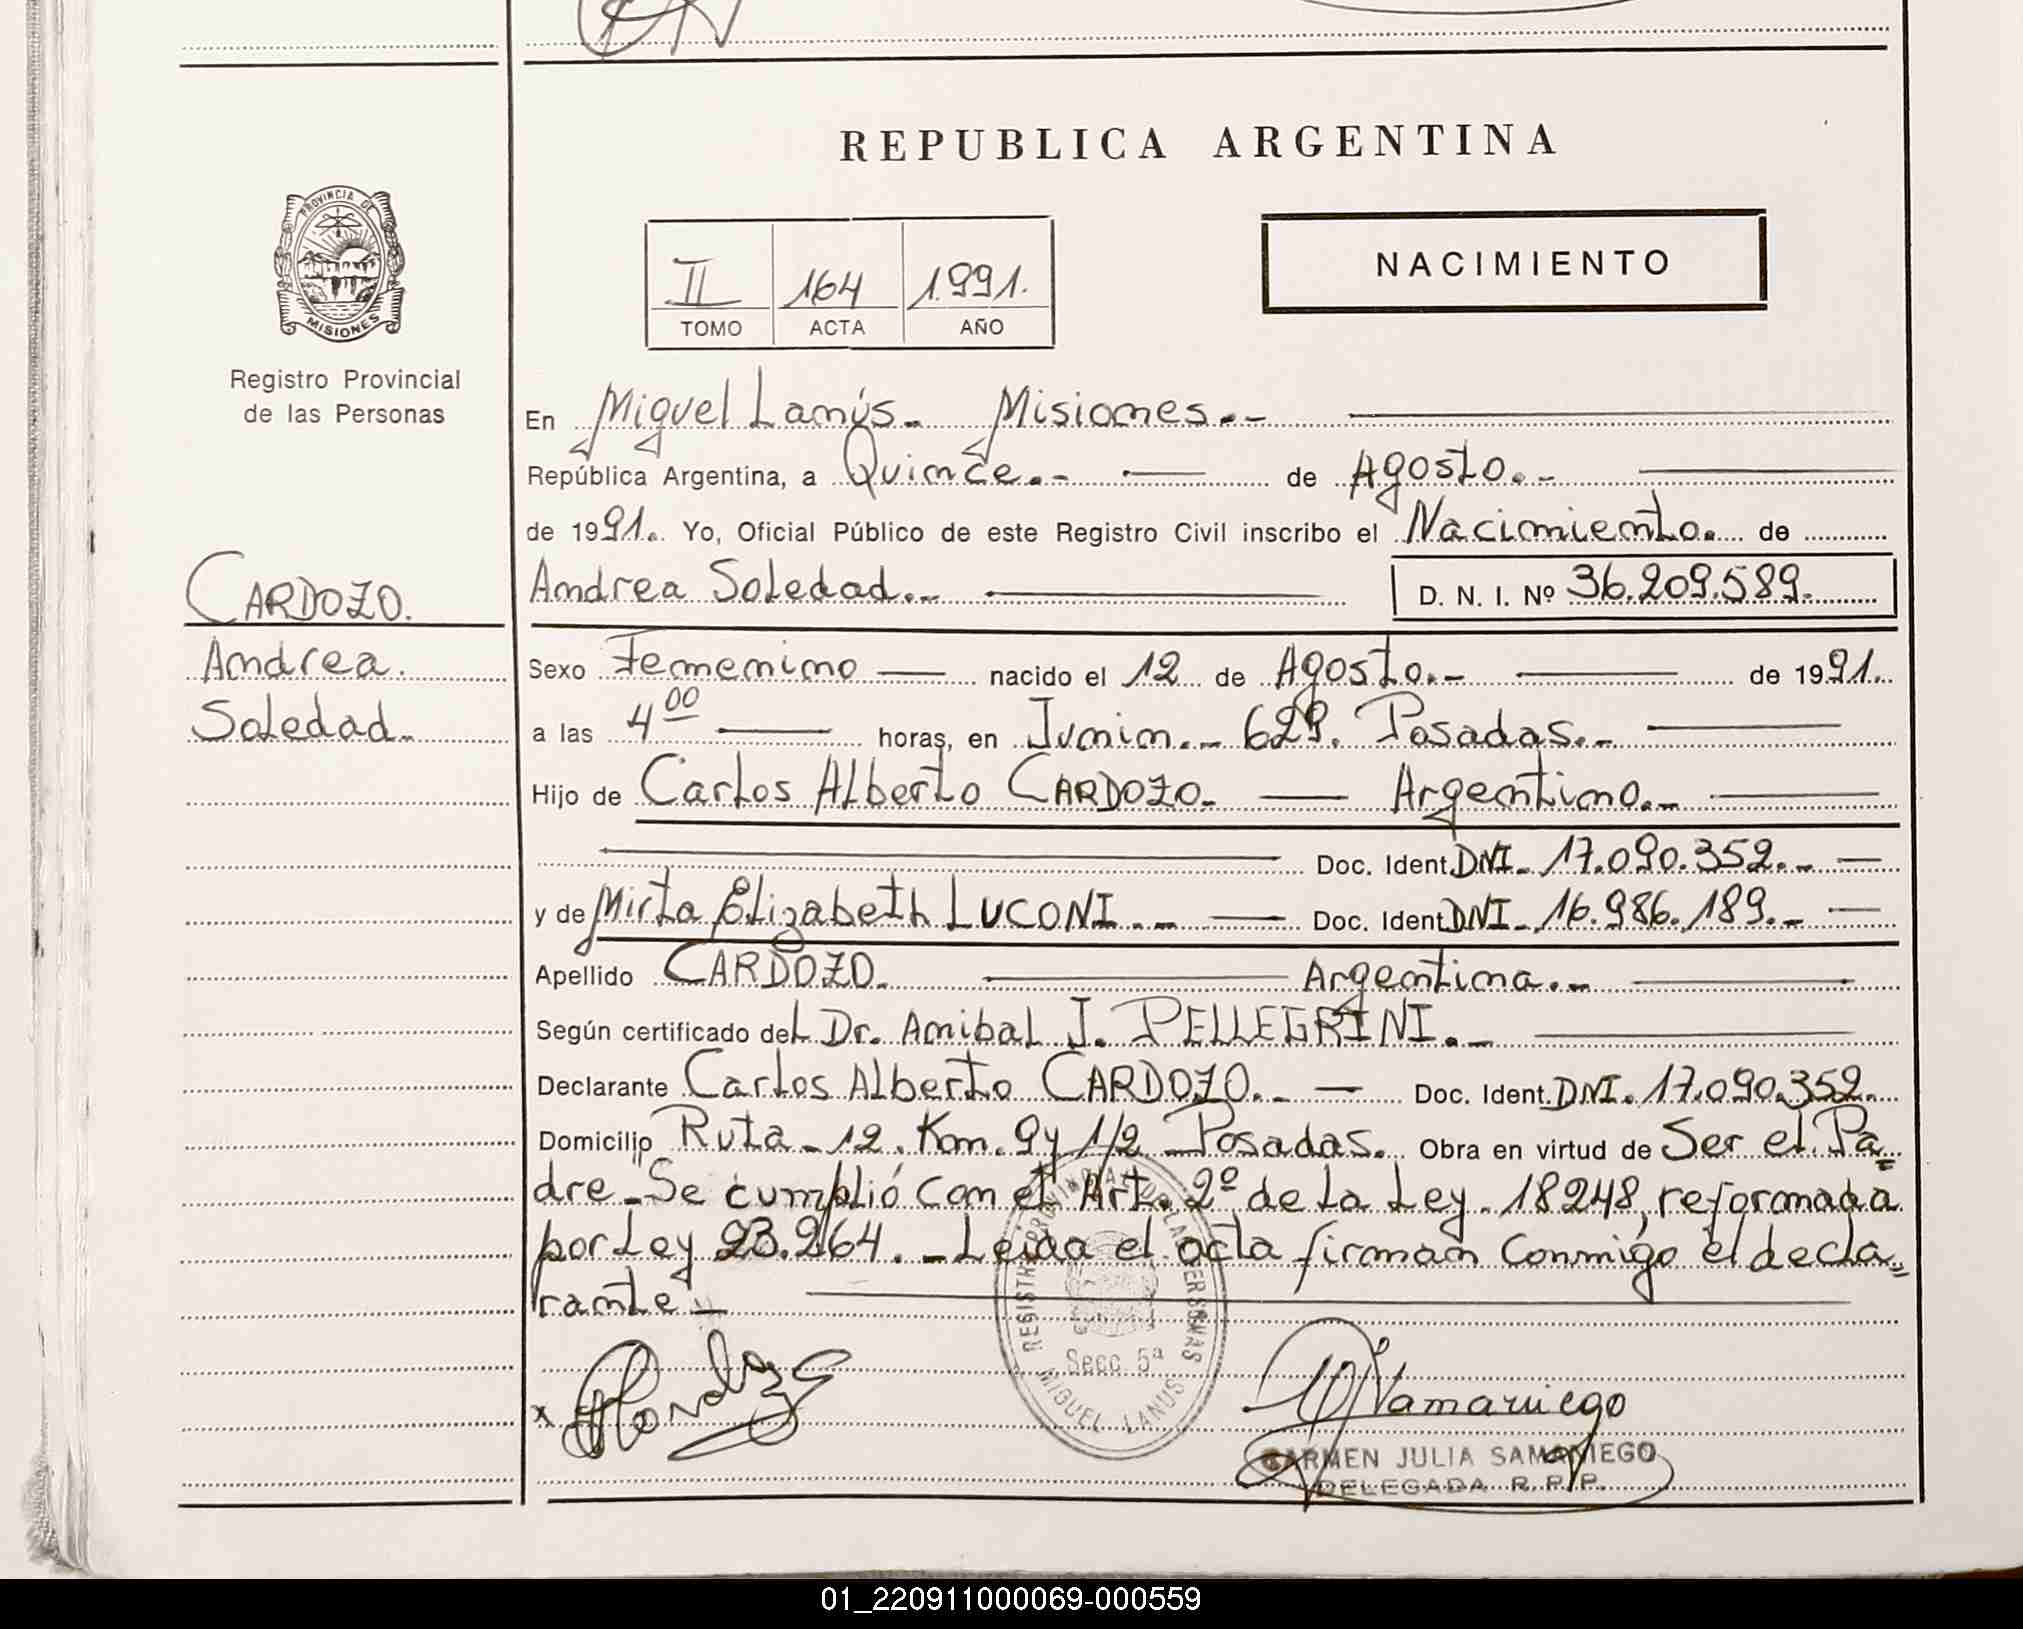 REPUBLICA ARGENTINA
PROVINCIA DE
MISIONES
Registro Provincial
de las Personas
II 164 1.991.
TOMO ACTA AÑO
NACIMIENTO
En Miguel Lanús. Misiones.-
República Argentina, a Quince.- de Agosto.-
de 1991. Yo, Oficial Público de este Registro Civil inscribo el Nacimiento. de
Andrea Soledad.- D. N. I. Nº 36.209.589.
CARDOZO.
Andrea.
Soledad.
Sexo Femenino nacido el 12 de Agosto.- de 1991.
a las 4 00 horas, en Junin.- 629. Posadas.-
Hijo de Carlos Alberto CARDOZO. Argentino.-
Doc. Ident. DNI. 17.090.352.-
y de Mirta Elizabeth LUCONI.- Doc. Ident. DNI. 16.986.189.-
Apellido CARDOZO. Argentina.-
Según certificado del Dr. Anibal J. PELLEGRINI.-
Declarante Carlos Alberto CARDOZO.- Doc. Ident. DNI. 17.090.352.
Domicilio Ruta 12. Km. 9 y 1/2 Posadas. Obra en virtud de Ser el Pa=
dre. Se cumplió con el Art. 2º de la Ley. 18248, reformada
por Ley 23.264. - Leida el acta firman conmigo el decla=
rante.-
REGISTRO PROVINCIAL DE LAS PERSONAS
Secc. 5ª
MIGUEL LANUS
CARMEN JULIA SAMANIEGO
DELEGADA R. P. P.
01_220911000069-000559